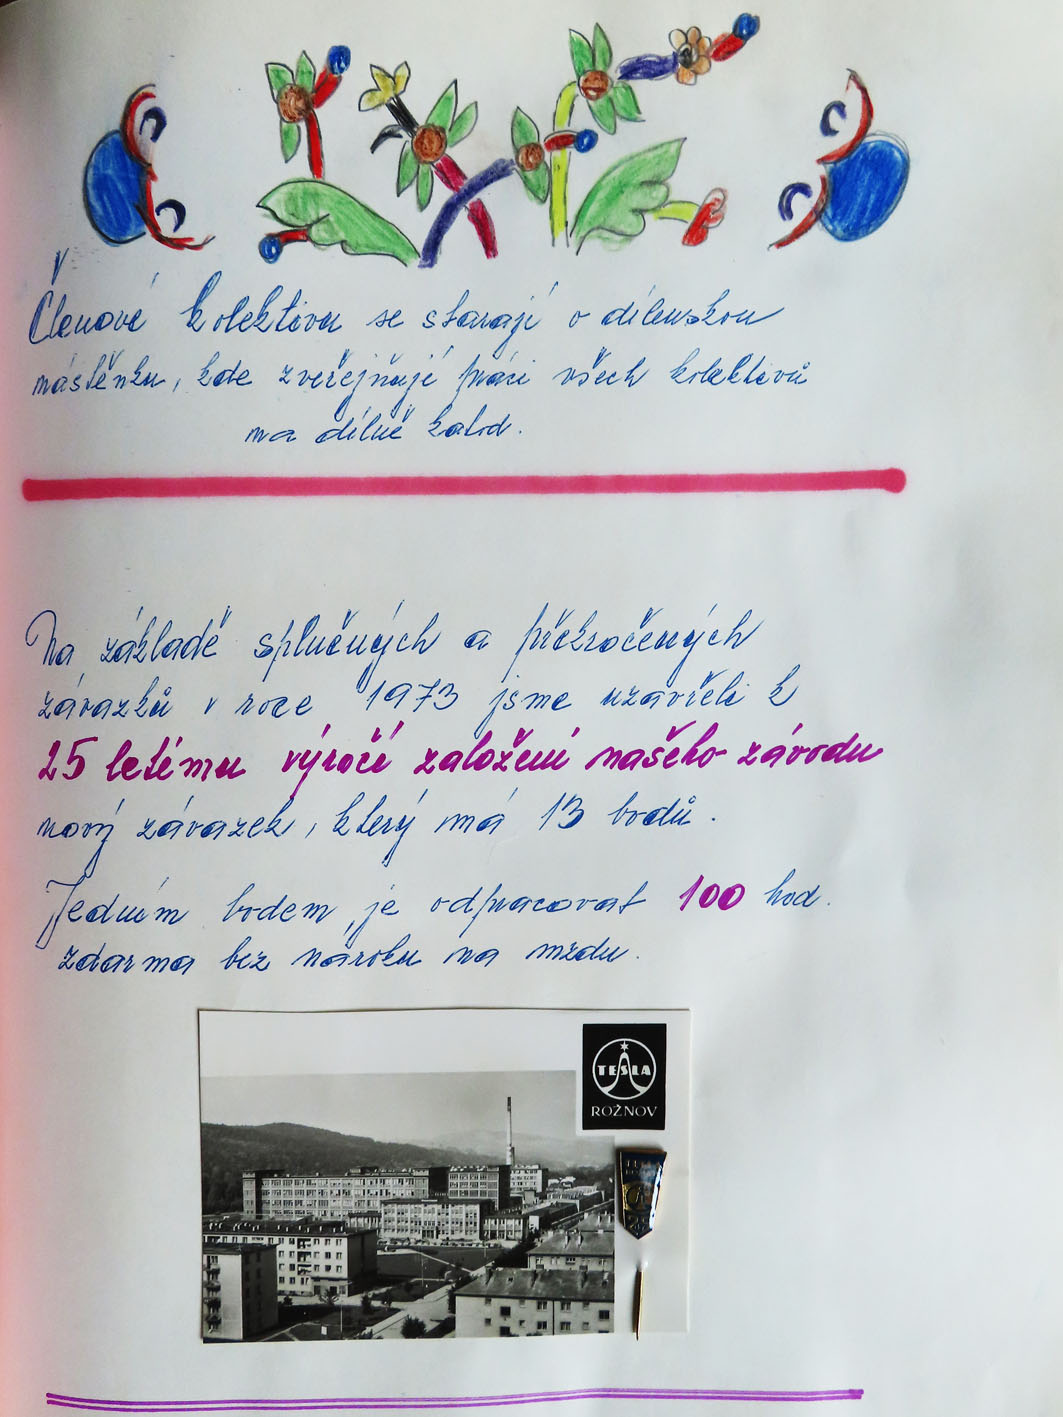 Členové kolektivu se starají o dílenskou
nástěnku, kde zveřejňují práci všech kolektivů
na dílně katod.
Na základě splněných a překročených
závazků v roce 1973 jsme uzavřeli k
25 letému výročí založení našeho závodu
nový závazek, který má 13 bodů.
Jedním bodem je odpracovat 100 hod.
zdarma bez nároku na mzdu.
TESLA
ROŽNOV